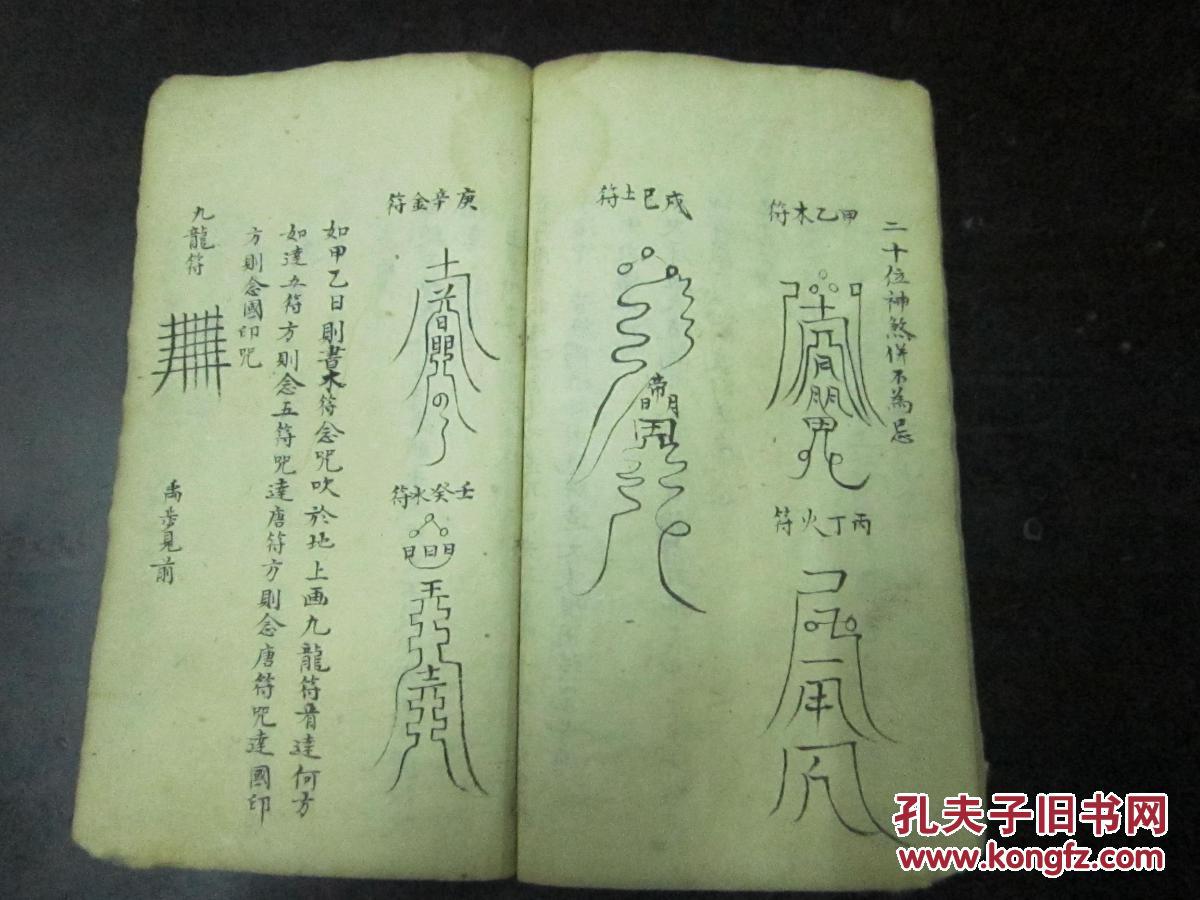 二十位神煞併不為忌
甲乙木符
丙丁火符
戍巳土符
庚辛金符
壬癸水符
如甲乙日則書木符念咒吹於地上画九龍符看達何方
如達五符方則念五符咒達唐符方則念唐符咒達國印
方則念國印咒
九龍符
禹步見前
孔夫子旧书网
www.kongfz.com